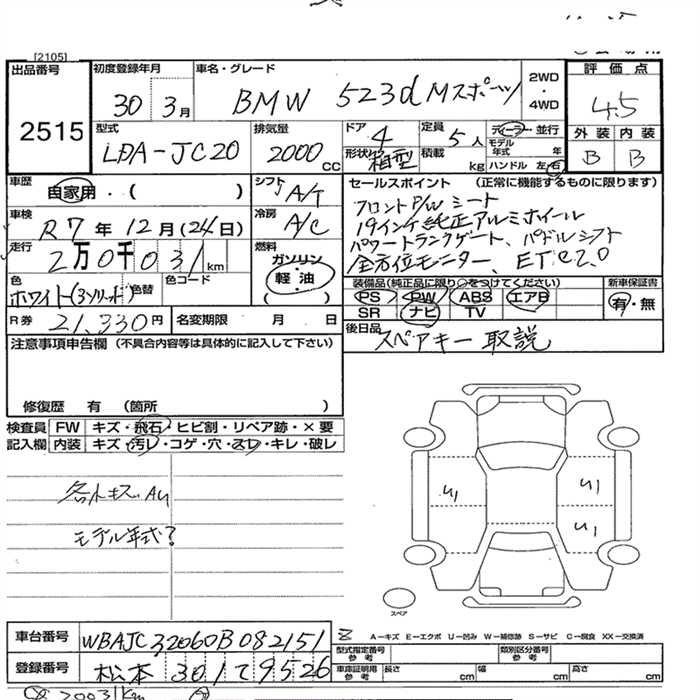 [2105]
出品番号
2515
初度登録年月
30 3月
車名・グレード
BMW 523d Mスポーツ
2WD
・
4WD
評価点
4.5
外装 内装
B B
型式
LDA-JC20
排気量
2000 CC
ドア
4
定員
5人
ディーラー 並行
モデル
年式 年
形状
箱型
積載 kg
ハンドル 左・右
車歴
自家用・( )
シフト
A/T
セールスポイント (正常に機能するものに限ります)
フロントP/Wシート
19インチ純正アルミホイール
パワートランクゲート、パドルシフト
全方位モニター、ETC2.0
車検
R7年12月(24日)
冷房
A/C
走行
2万0千031km
燃料
ガソリン
軽・油
( )
色
ホワイト(3ソリッド)
色替
色コード
装備品(純正品に限り○をつけてください)
PS PW ABS エアB
SR ナビ TV
新車保証書
有・無
R券 21,330円
名変期限 月 日
後日品
スペアキー 取説
注意事項申告欄 (不具合内容等は具体的に記入して下さい)
修復歴 有 (箇所 )
検査員 FW キズ・飛石・ヒビ割・リペア跡・×要
記入欄 内装 キズ・汚レ・コゲ・穴・スレ・キレ・破レ
各小キズ A4
モデル年式?
U1
U1
U1
スペア
A─キズ E─エクボ U─凹み W─補修跡 S─サビ C─腐食 XX─交換済
車台番号
WBAJC32060B082151
登録番号
松本 301 て 9526
型式指定番号
参考
類別区分番号
参考
車庫証明用
参考
長さ cm
幅 cm
高さ cm
20031km